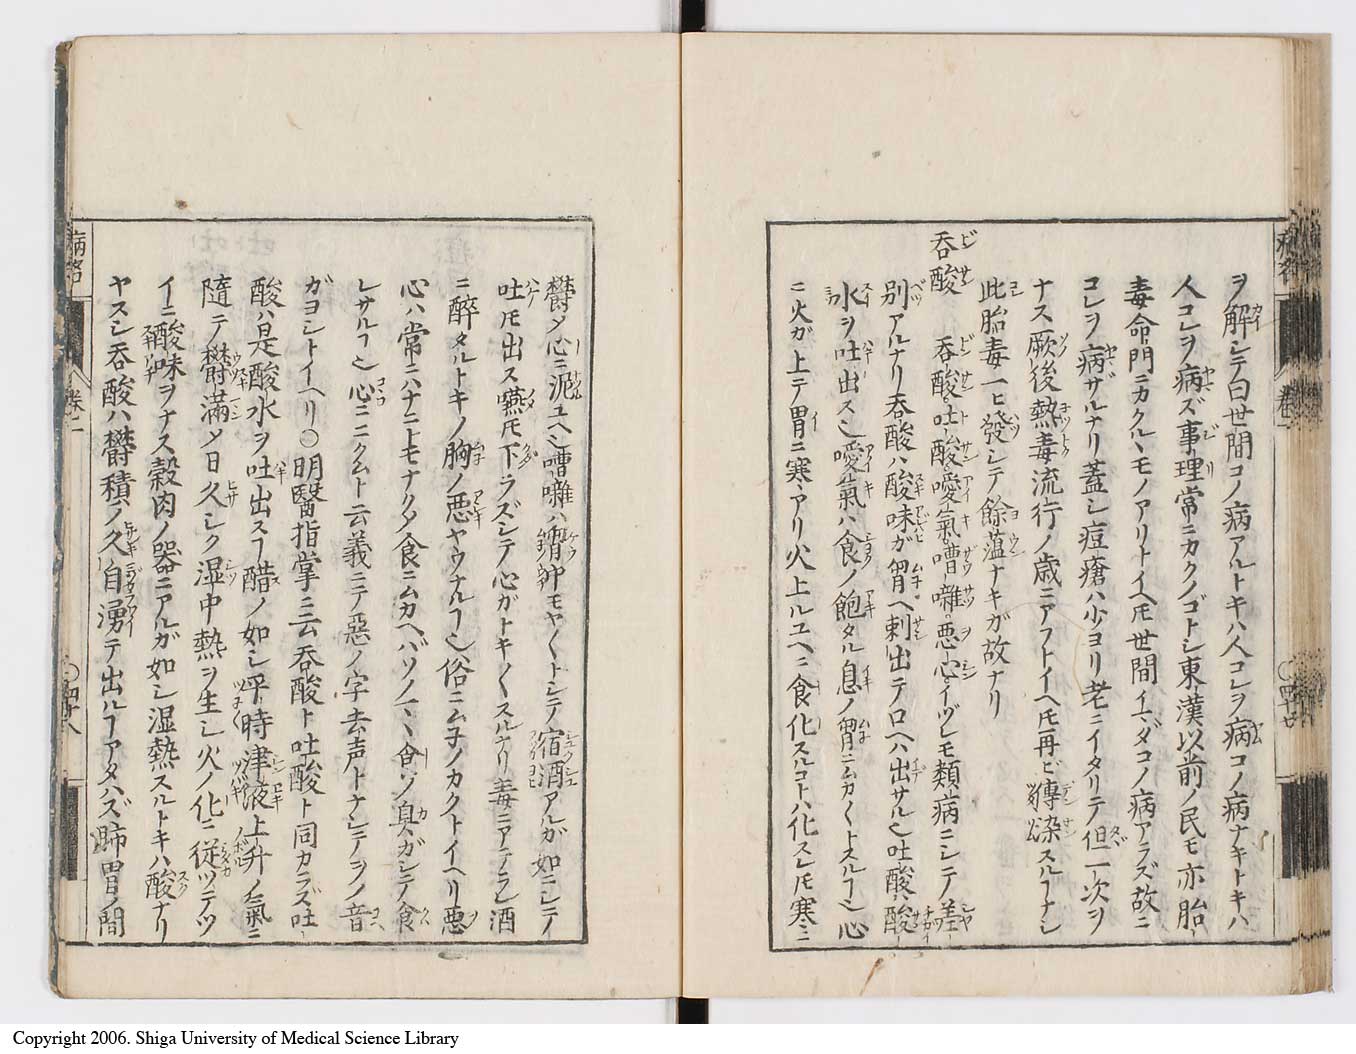 ヲ解シテ曰世間コノ病アルトキハ人コレヲ病コノ病ナキトキハ
人コレヲ病ズ事理常ニカクノゴトシ東漢以前ノ民モ亦胎
毒命門ニカクルヽモノアリトイヘ𪜈世間イマダコノ病アラズ故ニ
コレヲ病ザルナリ蓋シ痘瘡ハ少ヨリ老ニイタリテ但一次ヲ
ナス厥後熱毒流行ノ歳ニアフトイヘ𪜈再ビ傳染スルヿナシ
此胎毒一ヒ發シテ餘蘊ナキガ故ナリ
呑酸 呑酸吐酸噯氣嘈囃悪心イヅレモ類病ニシテ差
別アルナリ呑酸ハ酸味ガ胷ヘ刺出テロヘハ出サル也吐酸ハ酸
水ヲ吐出ス也噯氣ハ食ノ飽タル息ノ胷ニムカ〱トスルヿ也心
ニ火ガ上テ胃ニ寒アリ火上ルユヘニ食化スルコトハ化スレ𪜈寒ニ
欝メ心ニ泥ユヘ也嘈囃ハ俗ニムモヤ〱トシテ宿酒アルガ如ニシテ
吐𪜈出ス嚥𪜈下ラズシテ心ガトキ〱スルナリ毒ニアテラレ酒
ニ醉タルトキノ胸ノ悪ヤウナルヿ也俗ニムネノカクトイヘリ悪
心ハ常ニハナニトモナクタ食ニムカヘバソノマヽ食ゾ臭ガシテ食
レサルヿ也心ニニクムト云義ニテ惡ノ字去声トナシテヲノ音
ガヨシトイヘリ○明醫指掌ニ云呑酸ト吐酸ト同カラズ吐
酸ハ是酸水ヲ吐出スヿ醋ノ如シ平時津液上升ノ氣ニ
隨テ欝滿メ日久シク湿中熱ヲ生シ火ノ化ニ従ツテツ
イニ酸味ヲナス穀肉ノ器ニアルガ如シ湿熱スルトキハ酸ナリ
ヤスシ呑酸ハ欝積ノ久自湧テ出ルヿアタハズ肺胃ノ間
病名
卷二
○四十八
○四十七
Copyright 2006. Shiga University of Medical Science Library